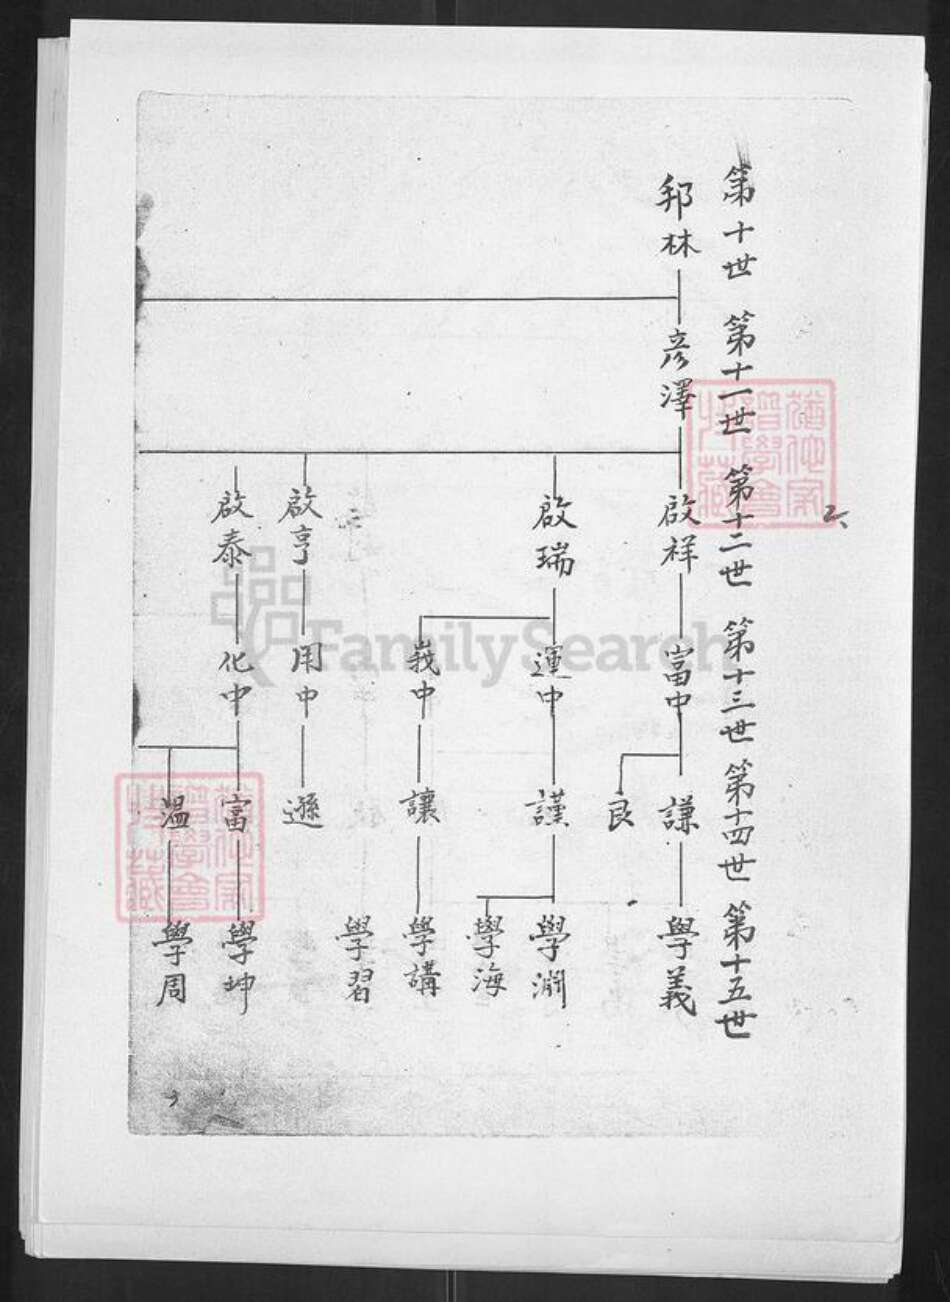 六
第十世
第十一世
第十二世
第十三世
第十四世
第十五世
邦林
彦澤
啟祥
富中
謙
學義
艮
啟瑞
運中
謹
學淵
學海
峩中
讓
學講
學習
啟亨
用中
遜
啟泰
化中
富
學坤
溫
學周
FamilySearch